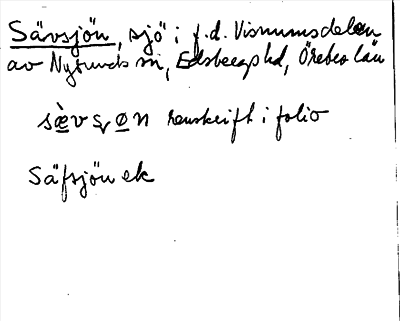 Sävsjön, sjö i f.d. Visnumsdelen
av Nysunds sn, Edsbergs hd, Örebro län
sæ̀vsøn renskrift i folio
Säfsjön ek